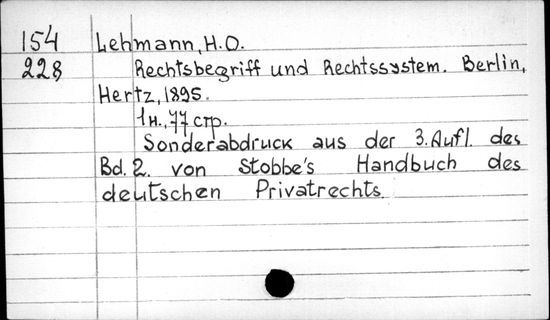 154 Lehmann, H.O.
228 Rechtsbegriff und Rechtssystem. Berlin,
Hertz, 1895.
1н., 77 стр.
Sonderabdruck aus der 3. Aufl. des
Bd. 2. von Stobbe's Handbuch des
deutschen Privatrechts.